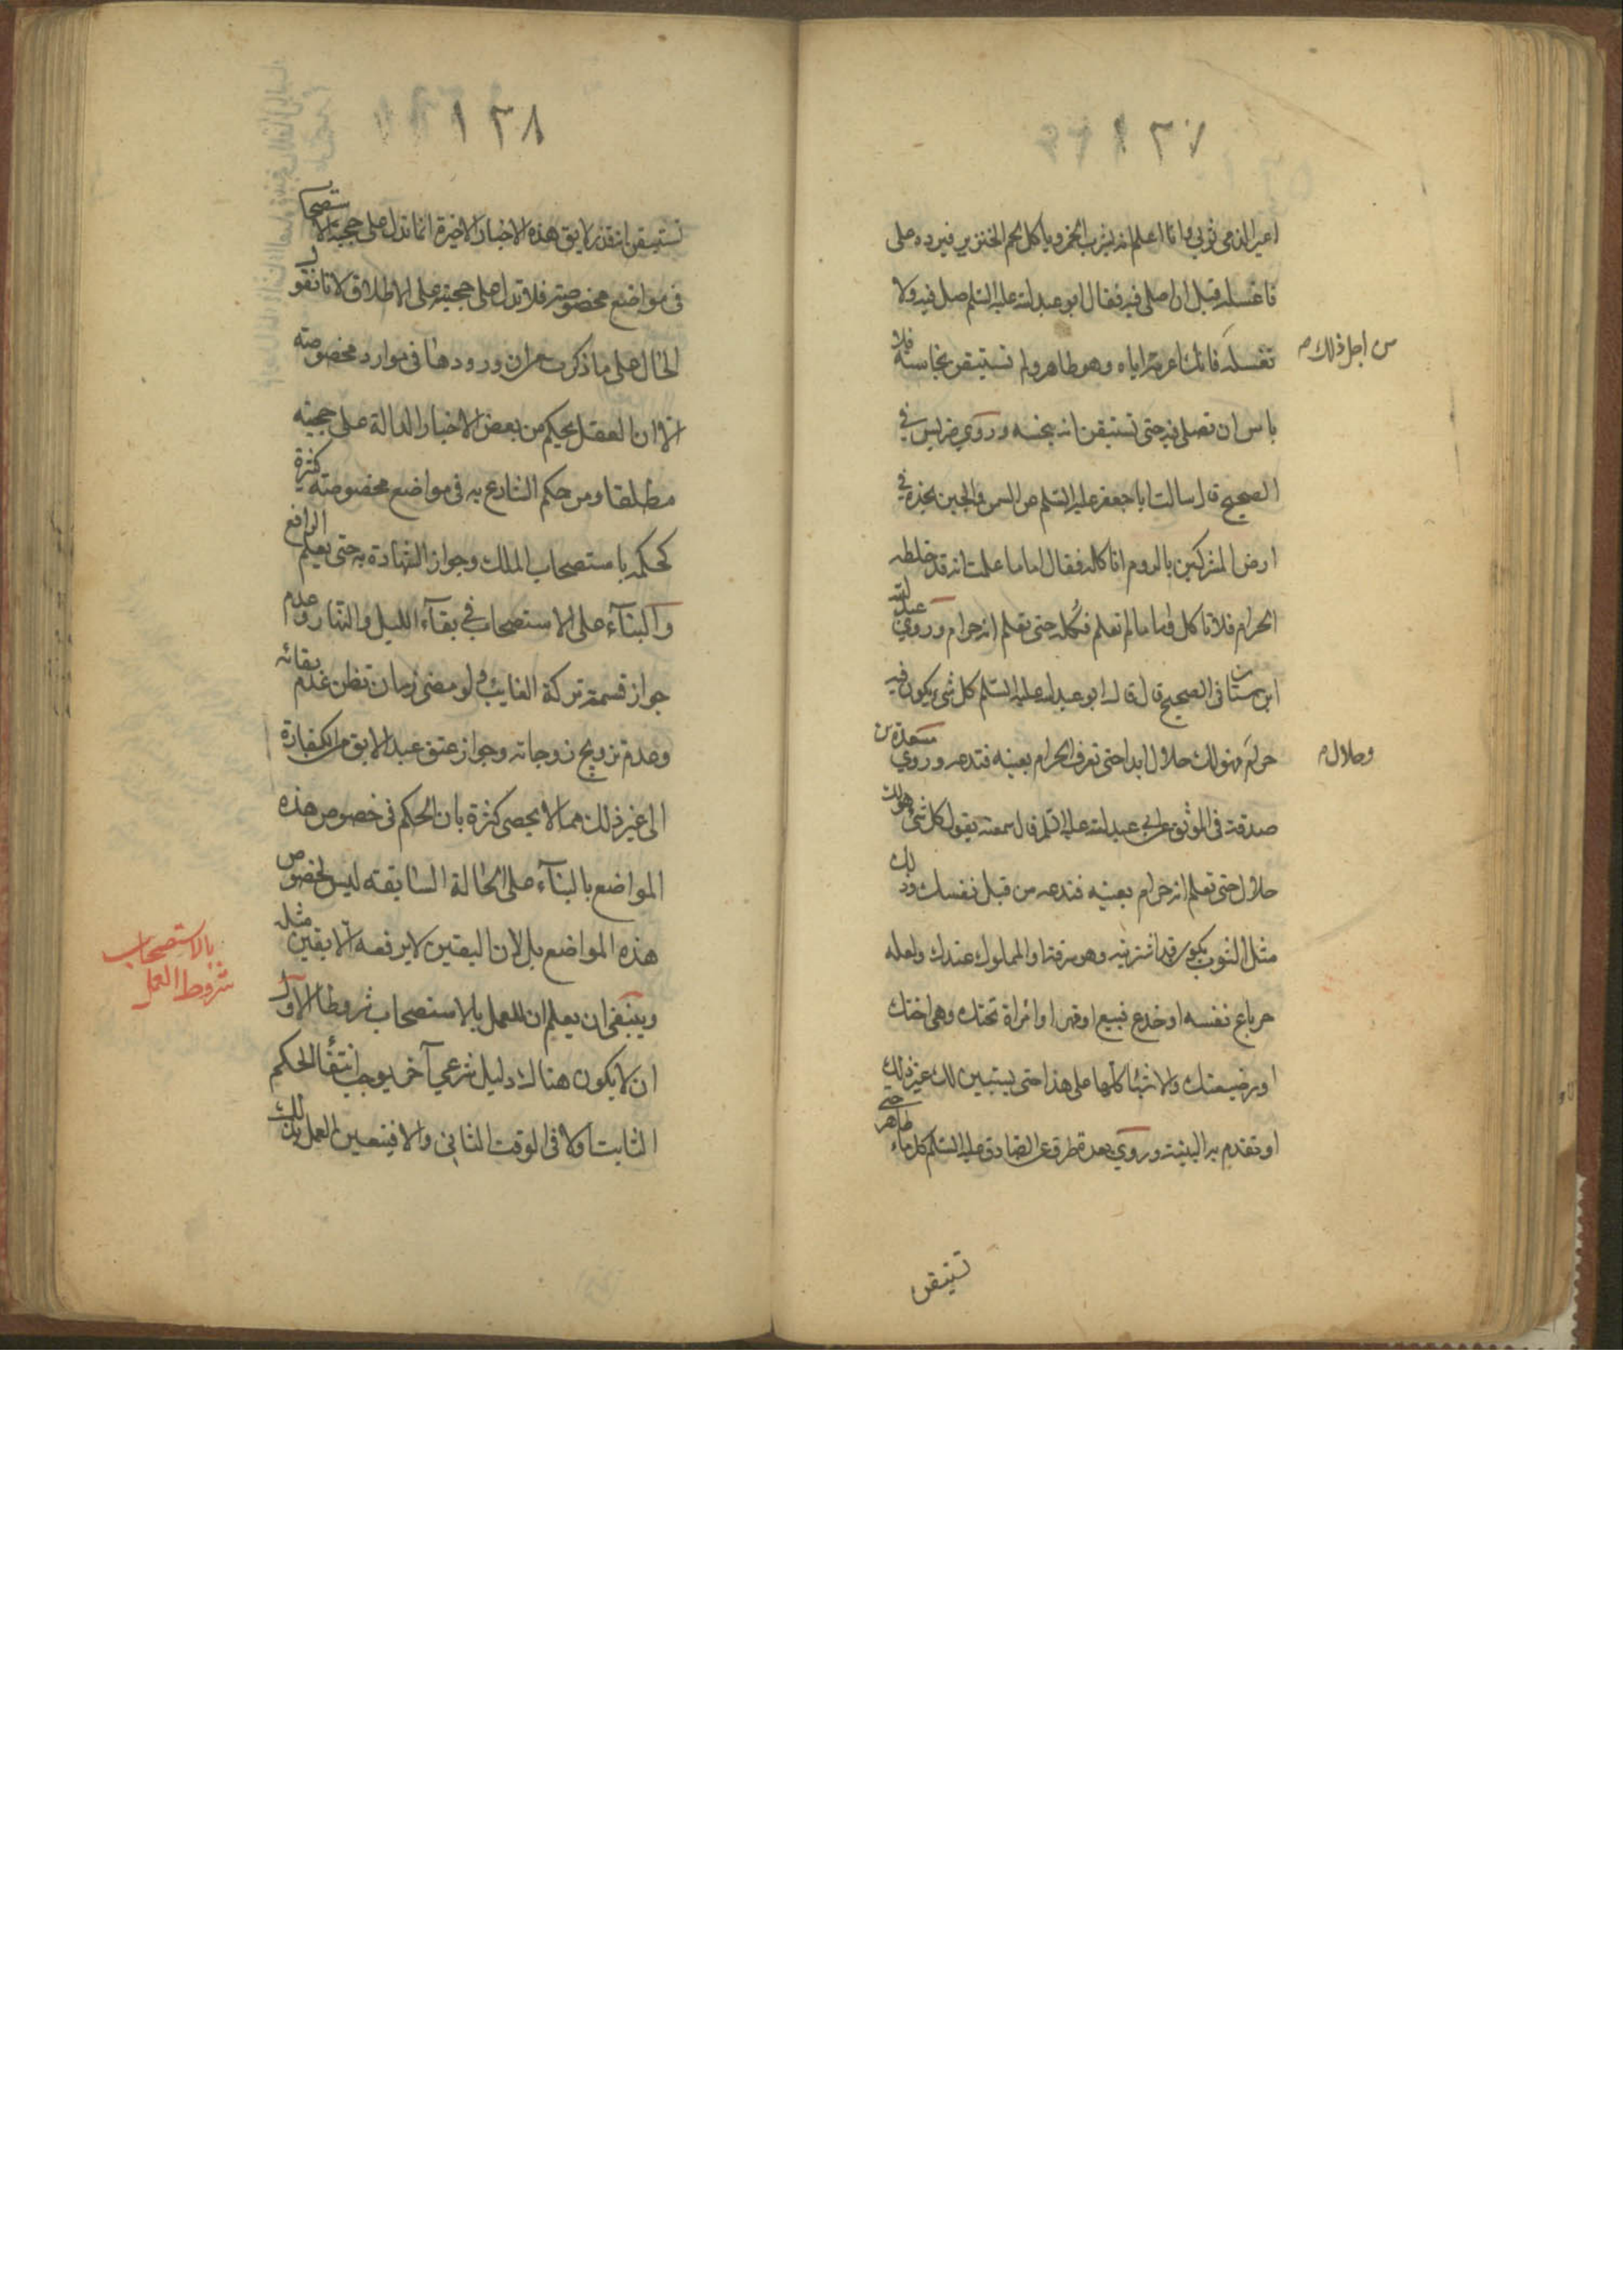 ١٣٧
اعير الذمي ثوبي وانا اعلم انه يشرب الخمر وياكل لحم الخنزير فيرده على
فاغسله قبل ان اصلى فيه فقال ابو عبد الله عليه السلم صل فيه ولا
تغسله فانك اعرته اياه وهو طاهر ولم تستيقن نجاسته فلا
من اجل ذلك
باس ان تصلى فيه حتى تستيقن انه نجسه وروي ضريس في
الصحيح قال سالت ابا جعفر عليه السلم عن السمن والجبن نجده في
ارض المشركين بالروم اناكله فقال اما ما علمت انه قد خلطه
الحرام فلا تاكل واما ما لم تعلم فكله حتى تعلم انه حرام وروي عبد الله
ابن سنان فى الصحيح قال قال ابو عبد الله عليه السلم كل شئ يكون فيه
حرام فهو لك حلال ابدا حتى تعرف الحرام بعينه فتدعه وروي مسعدة بن
وحلال
صدقة فى الموثق عن ابي عبد الله عليه السلم قال سمعته يقول كل شئ هو لك
حلال حتى تعلم انه حرام بعينه فتدعه من قبل نفسك وذلك
مثل الثوب يكون قد اشتريته وهو سرقة او المملوك عندك ولعله
حر باع نفسه او خدع فبيع او قهر او امراة تحتك وهى اختك
او رضيعتك والاشياء كلها على هذا حتى يستبين لك غير ذلك
او تقدم به البينة وروي بعدة طرق عن الصادق عليه السلم كل ماء طاهر حتى
تستيقن
١٣٨
تستيقن انه قذر لا يق هذه الاخبار الاخيرة انما تدل على حجية الاستصحاب
فى مواضع مخصوصة فلا تدل على حجيته على الاطلاق لانا نقول
الحال على ما ذكرت من ان ورودها فى موارد مخصوصة
الا ان العقل يحكم من بعض الاخبار الدالة على حجيته
مطلقا ومن حكم الشارع به فى مواضع مخصوصة كثيرة
كحكمه باستصحاب الملك وجواز الشهادة به حتى يعلم الرافع
والبناء على الاستصحاب في بقاء الليل والنهار وعدم
جواز قسمة تركة الغايب ولو مضى زمان تظن عدم بقائه
وعدم تزويج زوجاته وجواز عتق عبد الابق من الكفارة
الى غير ذلك مما لا يحصى كثرة بان الحكم فى خصوص هذه
المواضع بالبناء على الحالة السابقة ليس لخصوص
هذه المواضع بل لان اليقين لا يرفعه الا يقين مثله
وينبغى ان يعلم ان للعمل بالاستصحاب شروطا الاول
شروط العمل
بالاستصحاب
ان لا يكون هناك دليل شرعي آخر يوجب انتفاء الحكم
الثابت اولا فى الوقت الثاني والا فيتعين العمل بذلك